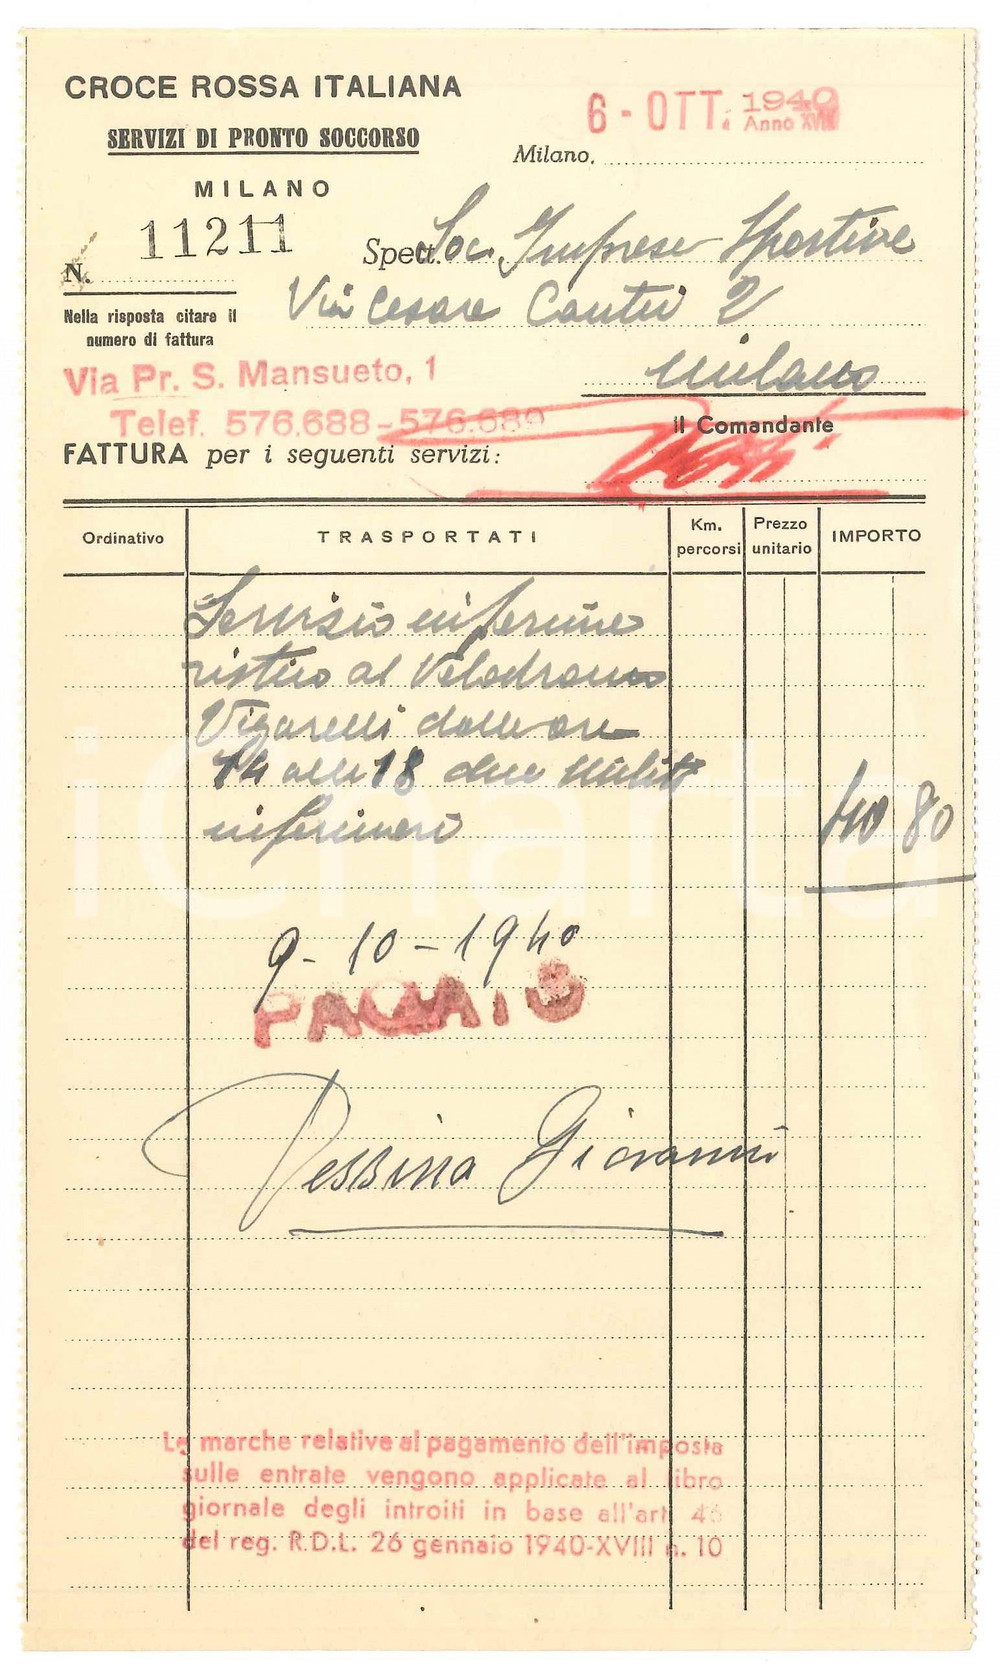 CROCE ROSSA ITALIANA
SERVIZI DI PRONTO SOCCORSO
MILANO
6 - OTT. 1940
Anno XVIII
Milano,
N. 11211
Spett. Soc. Imprese Sportive
Via Cesare Cantù 2
Milano
Nella risposta citare il
numero di fattura
Via Pr. S. Mansueto, 1
Telef. 576.688-576.689
il Comandante
FATTURA per i seguenti servizi:
Ordinativo TRASPORTATI Km. percorsi Prezzo unitario IMPORTO
Servizio inferime
ristico al Velodromo
Vigorelli dalle ore
14 alle 18 due Militi
infermieri 40 80
9-10-1940
PAGATO
Messina Giovanni
Le marche relative al pagamento dell'imposta
sulle entrate vengono applicate al libro
giornale degli introiti in base all'art 46
del reg. R.D.L. 26 gennaio 1940-XVIII n. 10
iCharta